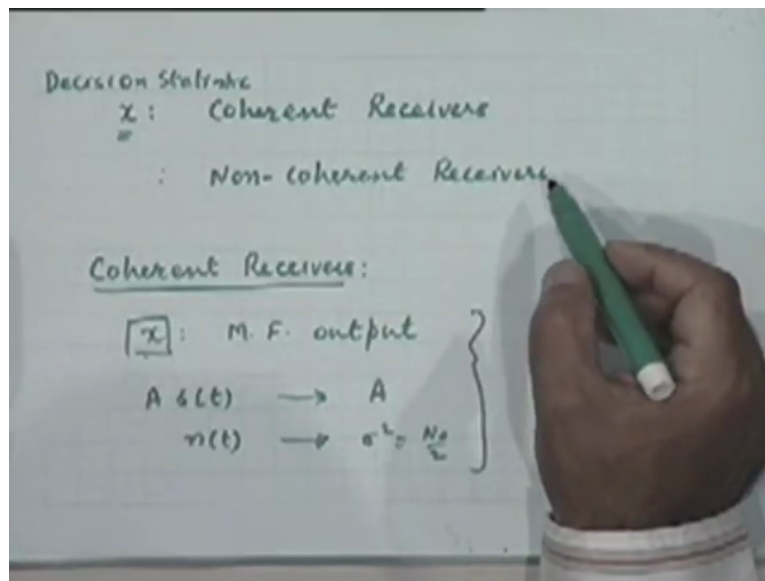 Decision Statistic
x : Coherent Receivers
: Non-coherent Receivers
Coherent Receivers:
x : M. F. output
A s(t) → A
n(t) → σ² = No/2